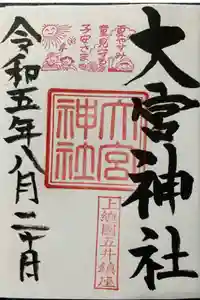 大宮神社
夏やすみ
童見守る
子安さま
大宮
神社
上総國五井鎮座
令和五年八月二十日